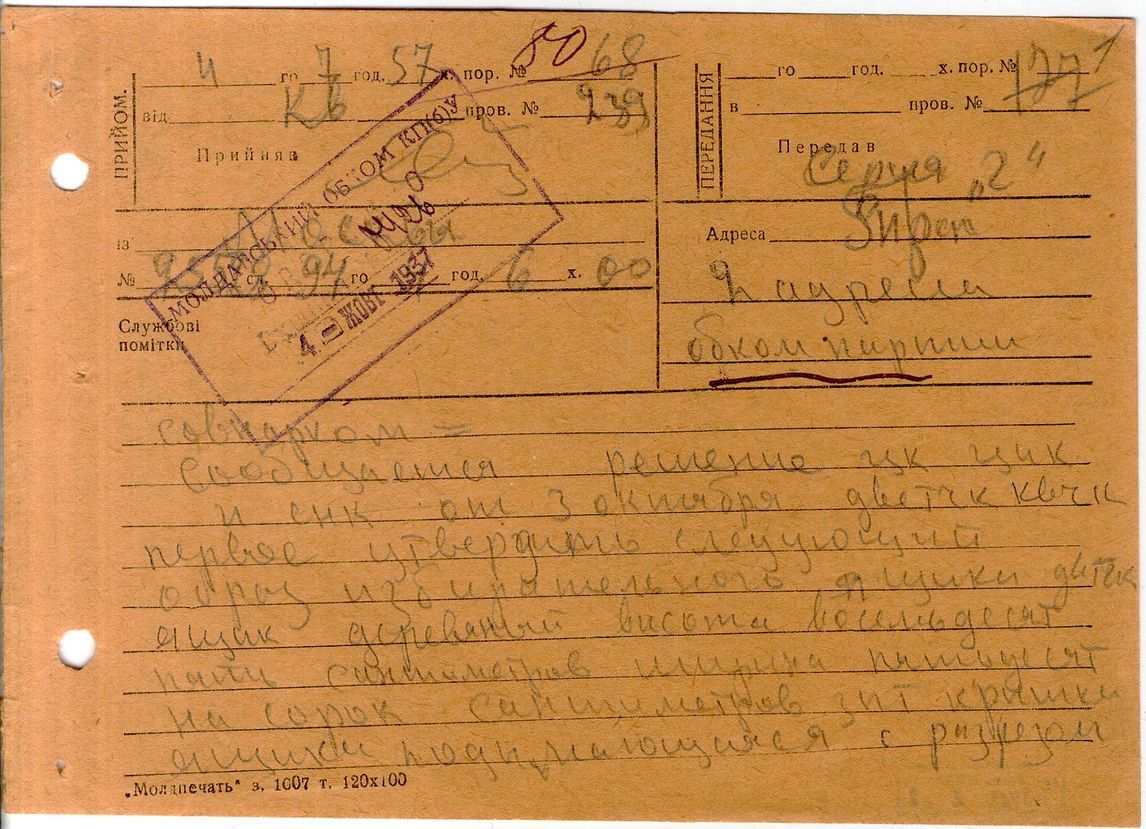 ПРИЙОМ.
4 го 7 год. 57 х. пор. № 68
80
від Кв пров. № 239
Прийняв
із Москвы
№ сл. 94 го год. 6 х. 00
Службові
помітки
МОЛДАВСЬКИЙ ОБКОМ КП(б)У
4 - ЖОВТ 1937
ПЕРЕДАННЯ
го год. х. пор. № 177
в пров. №
Передав
Серия „Г"
Адреса Тирсп
2 адреса
обком партии
совнарком =
сообщается решение цк цик
и снк от 3 октября дветчк квчк
первое утвердить следующий
образ избирательного ящики двтчк
ящик деревяный висота восемьдесят
пять сантиметров ширина пятьдесят
на сорок сантиметров зпт крышки
ящики подымающияся с разрезом
„Молдпечать" з. 1607 т. 120х100